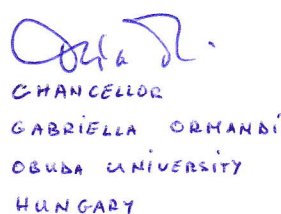 CHANCELLOR
GABRIELLA ORMANDÍ
OBUDA UNIVERSITY
HUNGARY